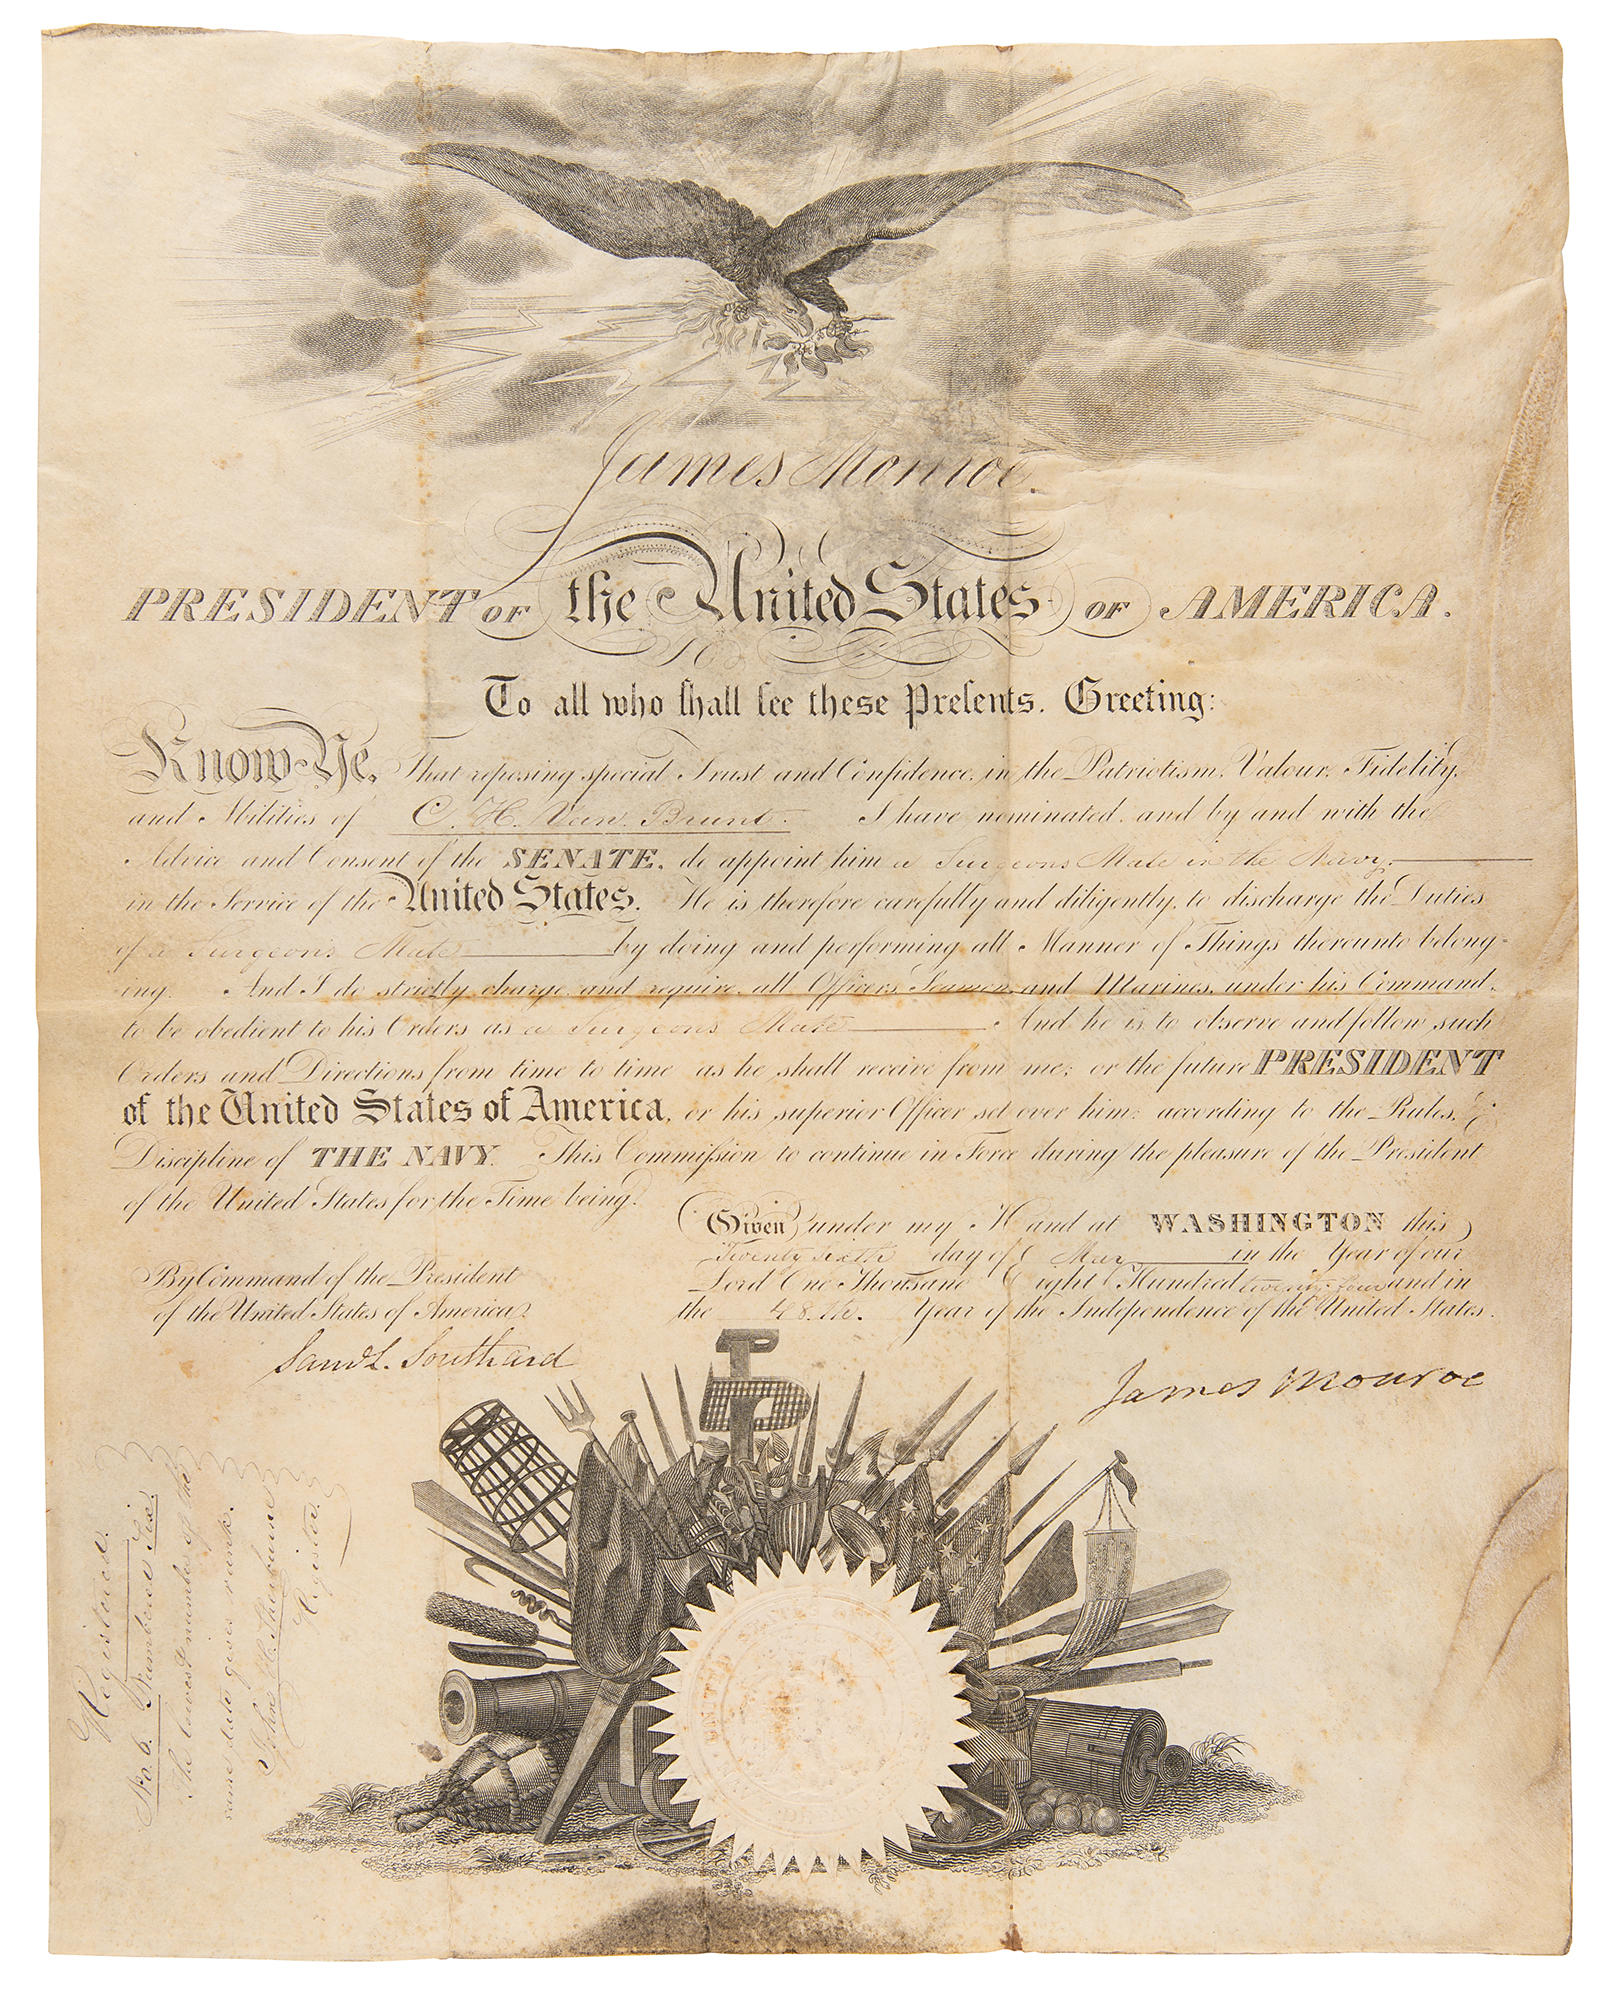 James Monroe.
PRESIDENT OF the United States OF AMERICA.
To all who ſhall ſee theſe Preſents. Greeting:
Know Ye, That reposing special Trust and Confidence, in the Patriotism, Valour, Fidelity,
and Abilities of C. H. Van Brunt. I have nominated, and by and with the
Advice and Consent of the SENATE, do appoint him a Surgeons Mate in the Navy.
in the Service of the United States. He is therefore carefully and diligently, to discharge the Duties
of a Surgeon's Mate by doing and performing all Manner of Things thereunto belong-
ing. And I do strictly charge, and require, all Officers, Seamen, and Marines, under his Command,
to be obedient to his Orders as a Surgeons Mate And he is to observe and follow such
Orders and Directions from time to time as he shall receive from me; or the future PRESIDENT
of the United States of America, or his superior Officer set over him; according to the Rules, &
Discipline of THE NAVY. This Commiſsion to continue in Force during the pleasure of the President
of the United States for the Time being.
Given under my Hand at WASHINGTON this
Twenty sixth day of May in the Year of our
Lord One Thousand Eight Hundred twenty four and in
the 48.th. Year of the Independence of the United States.
By Command of the President
of the United States of America.
Saml. L. Southard
James Monroe
Registered.
No. 6. Numbered Six.
The lowest number of the
same date gives rank.
Register.